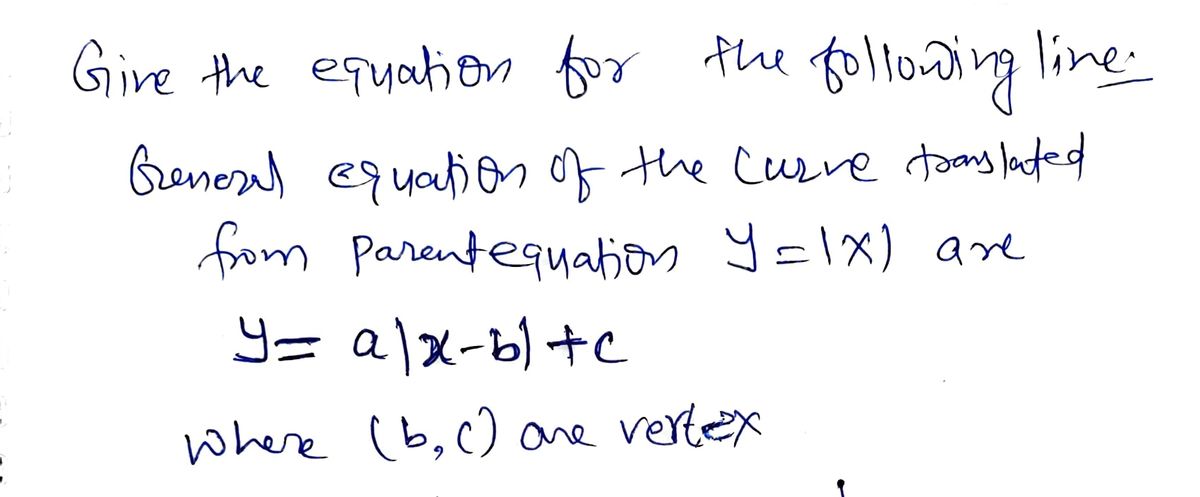 Give the equation for the following line.
General equation of the curve translated
from Parent equation y = |x| are
y = a|x-b| + c
where (b,c) are vertex